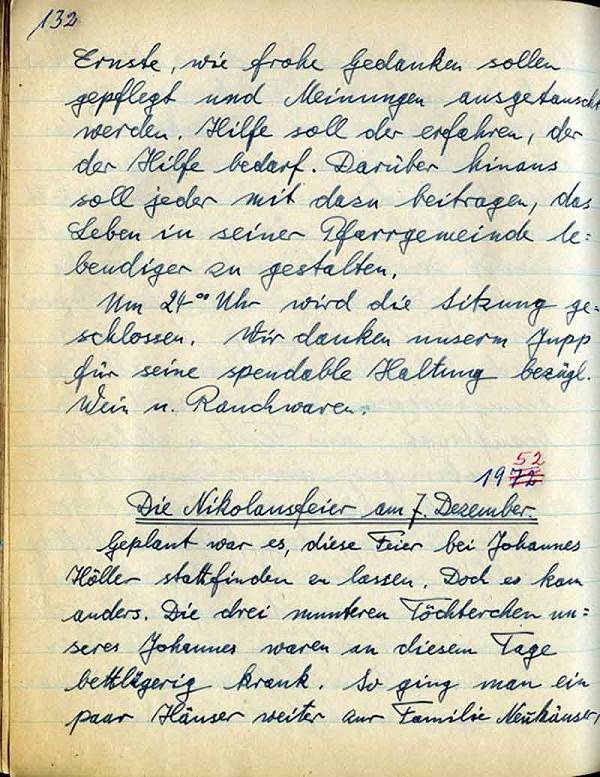 132
Ernste, wie frohe Gedanken sollen
gepflegt und Meinungen ausgetauscht
werden. Hilfe soll der erfahren, der
der Hilfe bedarf. Darüber hinaus
soll jeder mit dazu beitragen, das
Leben in seiner Pfarrgemeinde le=
bendiger zu gestalten.
Um 24⁰⁰ Uhr wird die Sitzung ge-
schlossen. Wir danken unserm Jupp
für seine spendable Haltung bezügl.
Wein u. Rauchwaren.
52
1972
Die Nikolausfeier am 7. Dezember.
Geplant war es, diese Feier bei Johannes
Höller stattfinden zu lassen. Doch es kam
anders. Die drei munteren Töchterchen un=
seres Johannes waren an diesem Tage
bettlägerig krank. So ging man ein
paar Häuser weiter zur Familie Neuhäuser,